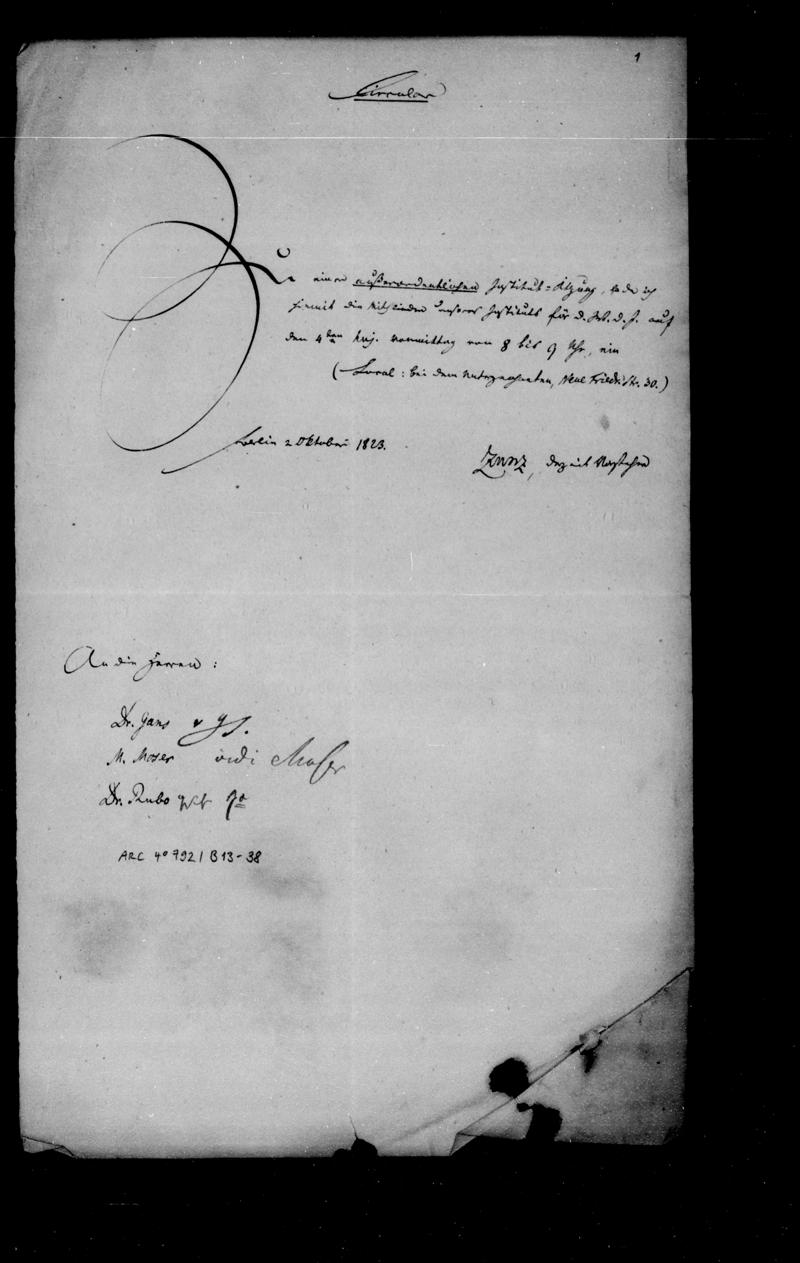 1
Circular
Zu einer außerordentlichen Institut-Sitzung, lade ich
hiemit die Mitglieder unseres Instituts für d. W. d. J. auf
den 4ten huj. Vormittag von 8 bis 9 Uhr, ein
(Local: bei dem Unterzeichneten, Neue Friedr. Str. 30.)
Berlin 2 Oktober 1823.
Zunz, derzeit Vorsteher
An die Herren:
Dr. Gans
M. Moser vidi Moser
Dr. Rubo
ARC 4° 792 / B13-38